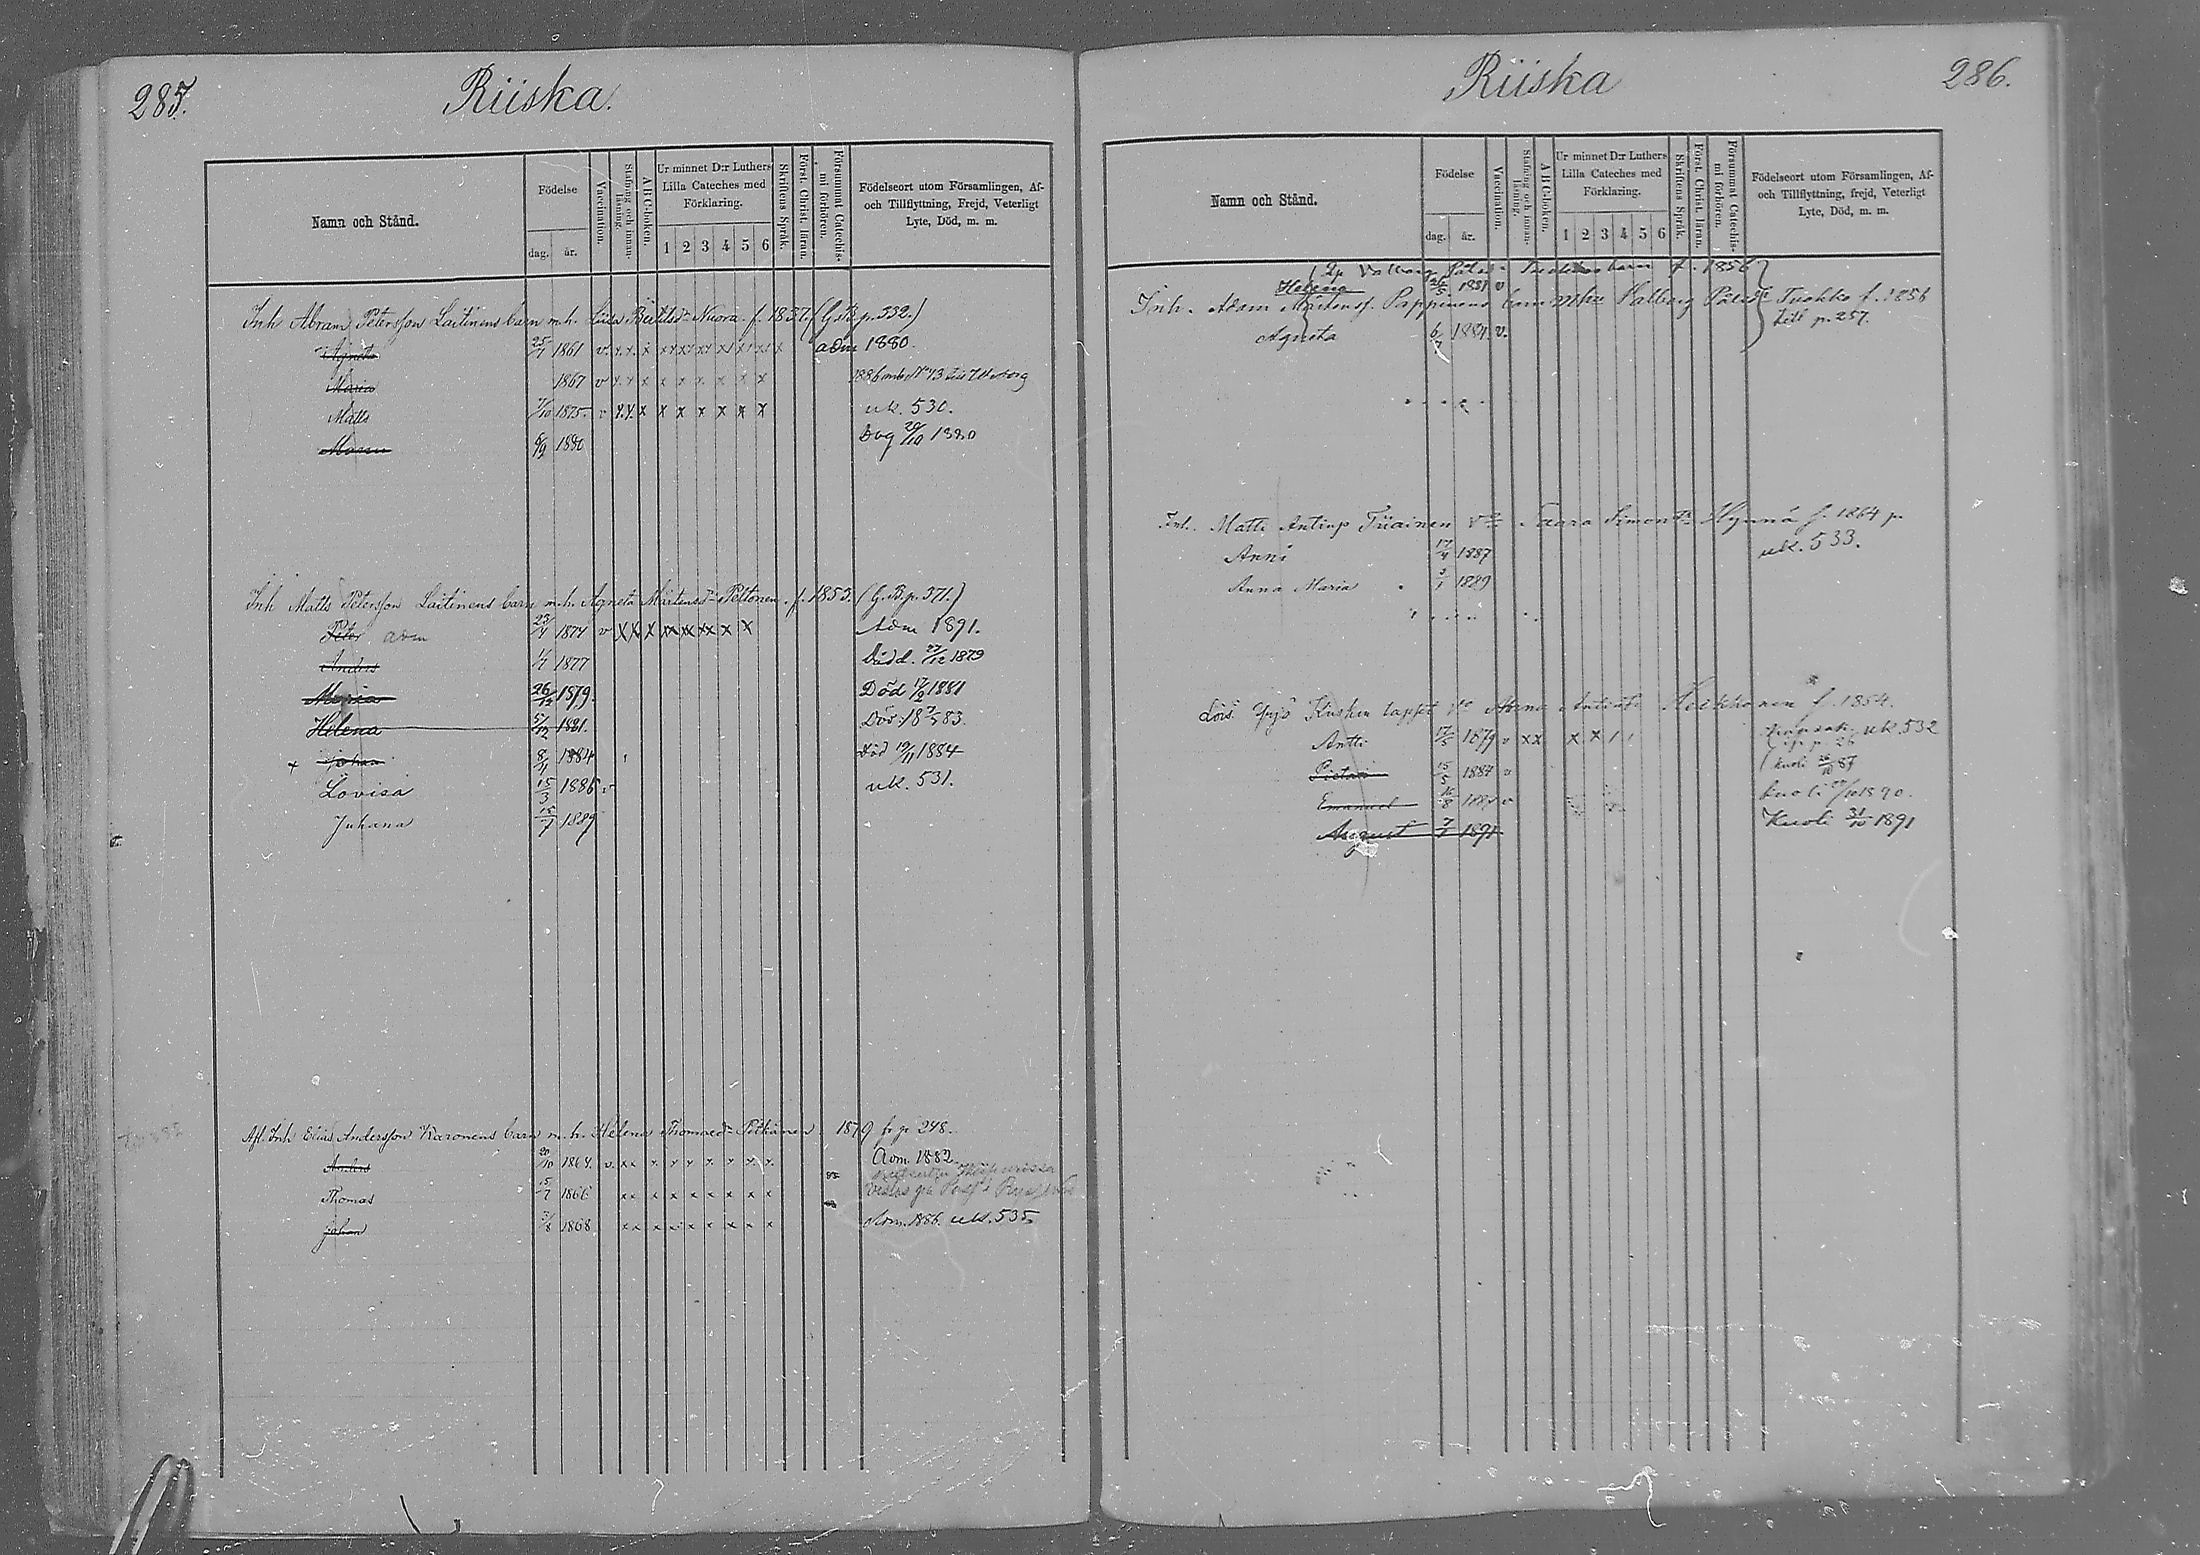 285.
Riiska.
Namn och Stånd.
Födelse
dag.
år.
Vaccination.
Stafning och innanläsning.
A B C-boken.
Ur minnet D:r Luthers
Lilla Cateches med
Förklaring.
1 2 3 4 5 6
Skriftens Språk.
Först. Christ. läran.
Försummat Catechismi förhören.
Födelseort utom Församlingen, Af-
och Tillflyttning, Frejd, Veterligt
Lyte, Död, m. m.
Inh Abram Petersson Laitinens barn m.h. Nuora f. 1837. (G.B. p. 532.)
Agneta 25/1 1861 v x x x x x x x x x x adm 1880.
Maria 1867 v x x x x x x x x x
Matts 7/10 1875 v x x x x x x x x x uk. 530.
8/9 1880 20/10 1880
Inh Matts Petersson Laitinens barn m.h. Agneta Mårtensd:r Peltonen f. 1853. (G.B. p. 571.)
Peter adm 23/4 1874 v x x x x x x x x x Adm 1891.
Anders 1/1 1877 Död. 27/12 1879
Maria 26/12 1879. Död 17/2 1881
Helena 5/12 1881. Död 18 7/5 83.
+ Johan 8/11 1884 Död 19/11 1884
Lovisa 15/3 1886 v uk. 531.
Juhana 15/7 1889
Afl. Inh Elias Andersson Karonens barn m.h. Helena Thomasd:r 1879 fr. p. 248.
Anders 20/10 1864. v. x x x x x x x x x Adm. 1882
Thomas 15/7 1866 x x x x x x x x x
Johan 3/8 1868 x x x x x x x x x Adm. 1886. uk. 535.
Riiska
286.
Namn och Stånd.
Födelse
dag.
år.
Vaccination.
Stafning och innanläsning.
A B C-boken.
Ur minnet D:r Luthers
Lilla Cateches med
Förklaring.
1 2 3 4 5 6
Skriftens Språk.
Först. Christ. läran.
Försummat Catechismi förhören.
Födelseort utom Församlingen, Af-
och Tillflyttning, frejd, Veterligt
Lyte, Död, m. m.
Valborg barn f. 1856
Helena 26/5 1881 v
Inh. Adam Mårtenss. Pappinens barn Valborg Tuokko f. 1856
till p. 257.
Agneta 6/7 1884. v.
Inh. Matti Antinp Tiiainen Saara Simont. Hynnä f. 1864 p
Anni 17/4 1887 uk. 533.
Anna Maria 3/1 1889
Lois. Yrjö lapset Anna Heikkonen f. 1854.
Antti 17/5 1879 v x x x x uk. 532
Pietari 15/5 1884 v kuoli 26/10 87
Emanuel 16/8 v kuoli 1890.
August 7/7 1891 Kuoli 31/10 1891